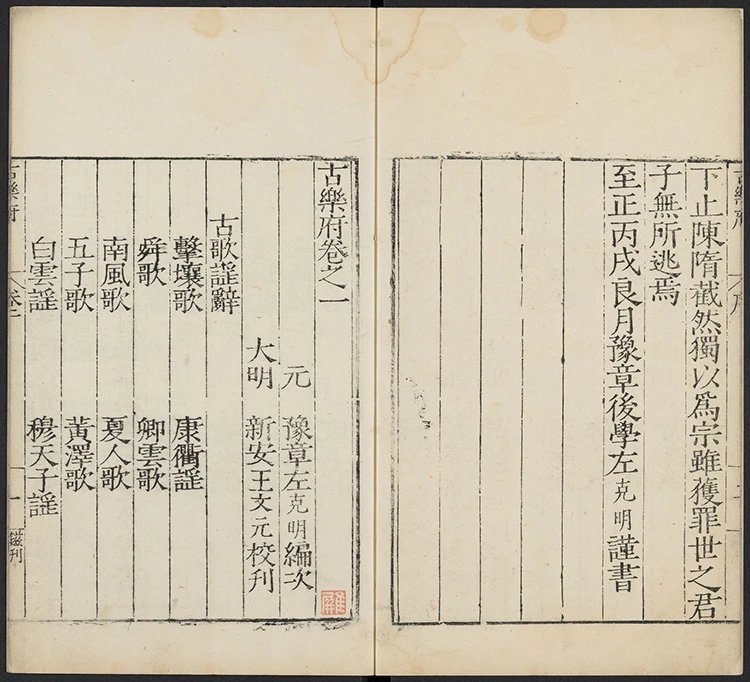 古樂府 序 二
下止陳隋截然獨以爲宗雖獲罪世之君
子無所逃焉
至正丙戌良月豫章後學左克明謹書
古樂府卷之一
元 豫章左克明編次
大明 新安王文元校刊
古歌謡辭
擊壤歌 康衢謡
舜歌 卿雲歌
南風歌 夏人歌
五子歌 黃澤歌
白雲謡 穆天子謡
古樂府 卷一 一 刊